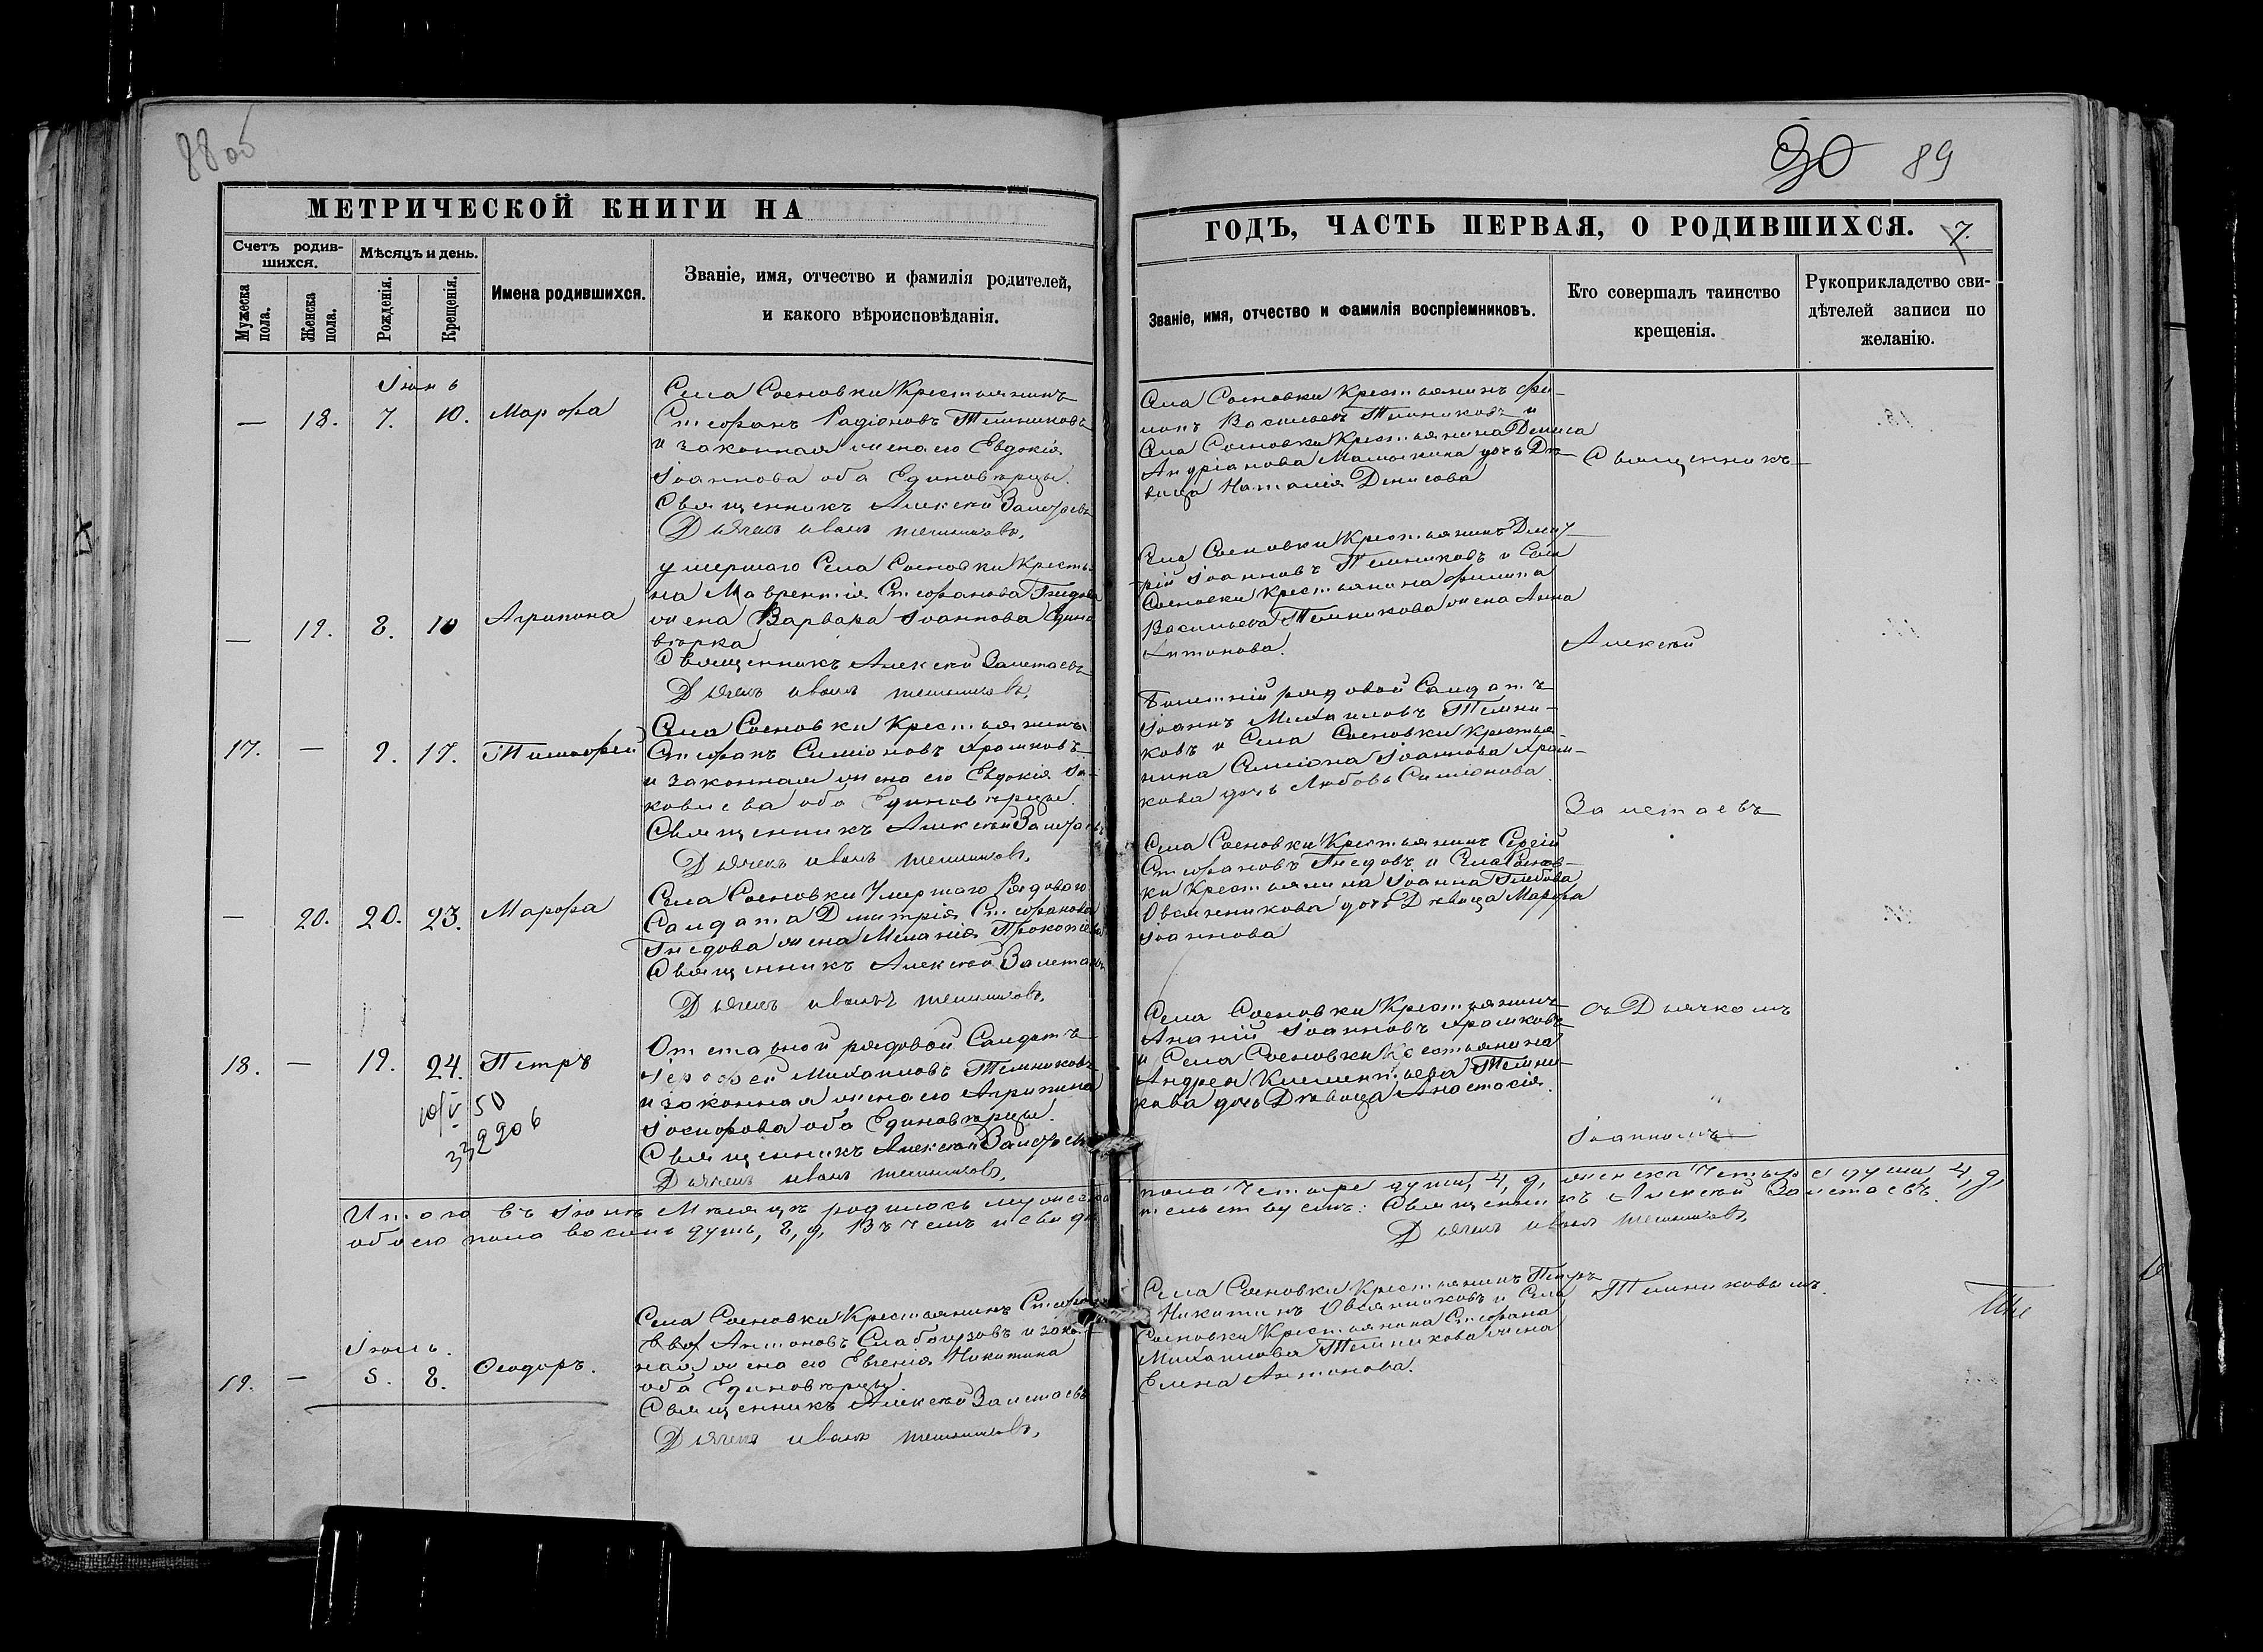 88 об
МЕТРИЧЕСКОЙ КНИГИ НА
Счетъ родив-
шихся.
Мѣсяцъ и день.
Мужеска
пола.
Женска
пола.
Рожденія.
Крещенія.
Имена родившихся.
Званіе, имя, отчество и фамилія родителей,
и какого вѣроисповѣданія.
Іюнь
— 18. 7. 10. Марѳа
Села Сосновки Крестьянинъ
Стефанъ Радіоновъ Темниковъ
и законная жена его Евдокія
Іоаннова оба Единовѣрцы.
Священникъ Алексѣй Заметаевъ
Дьячекъ иванъ темниковъ.
— 19. 8. 10 Агрипина
умершаго Села Сосновки Кресть
на Лаврентія Стефанова Гнедова
жена Варвара Іоаннова Едино
вѣрка
Священникъ Алексѣй Заметаевъ
Дьячекъ иванъ темниковъ.
17. — 9. 17. Тимофей
Села Сосновки Крестьянинъ
Стефанъ Симіоновъ Храмковъ
и законная жена его Евдокія Іа-
ковлева оба Единовѣрцы.
Священникъ Алексѣй Заметаевъ
Дьячекъ иванъ темниковъ.
— 20. 20. 23. Марѳа
Села Сосновки Умершаго Рядового
Салдата Дмитрія Стефанова
Гнедова жена Меланія Прокопіева
Священникъ Алексѣй Заметаевъ
Дьячекъ иванъ темниковъ.
18. — 19. 24. Петръ
10/V 50
332906
Отставной рядовой Салдатъ
Іерофей Михаиловъ Темниковъ
и законная жена его Агрипина
Іосифова оба Единовѣрцы.
Священникъ Алексѣй Заметаевъ
Дьячекъ иванъ темниковъ.
Итого въ Іюнѣ Мѣсяцѣ родилось мужеска
обоего пола восемь душъ, 8, д, Въ чемъ и свидѣ
Іюль.
19. — 5. 8. Ѳеодоръ.
Села Сосновки Крестьянинъ Стефанъ
Антоновъ Слабоузовъ и закон-
ная жена его Евгенія Никитина
оба Единовѣрцы.
Священникъ Алексѣй Заметаевъ
Дьячекъ иванъ темниковъ.
90 89
ГОДЪ, ЧАСТЬ ПЕРВАЯ, О РОДИВШИХСЯ. 7.
Званіе, имя, отчество и фамилія воспріемниковъ.
Кто совершалъ таинство
крещенія.
Рукоприкладство сви-
дѣтелей записи по
желанію.
Села Сосновки Крестьянинъ Фи-
липъ Васильевъ Темниковъ и
Села Сосновки Крестьянина Дениса
Андріанова Малышкина дочь Дѣ-
вица Наталія Денисова
Священникъ
Села Сосновки Крестьянинъ Дмит-
рій Іоанновъ Темниковъ и Села
Сосновки Крестьянина Филипа
Васильева Темникова жена Анна
Антонова.
Алексѣй
Билетній рядовой Салдатъ
Іоаннъ Михаиловъ Темни-
ковъ и Села Сосновки Крестья-
нина Симіона Іоаннова Храм-
кова дочь Любовь Симіонова.
Заметаевъ
Села Сосновки Крестьянинъ Сергій
Стефановъ Гнедовъ и Села Соснов-
ки Крестьянина Іоанна Глебова
Овсянникова дочь Дѣвица Марѳа
Іоаннова
Села Сосновки Крестьянинъ
Ананій Іоанновъ Храмковъ
и Села Сосновки Крестьянина
Андрея Климентьева Темни-
кова дочь Дѣвица Анастасія.
съ Дьячкомъ
Іоанномъ
пола Четыре души, 4, д, женска Четыре души 4, д,
тельствуемъ: Священникъ Алексѣй Заметаевъ.
Дьячекъ иванъ темниковъ.
Села Сосновки Крестьянинъ Петръ
Никитинъ Овсянниковъ и Села
Сосновки Крестьянина Стефана
Михаилова Темникова жена
Елена Антонова.
Темниковымъ.